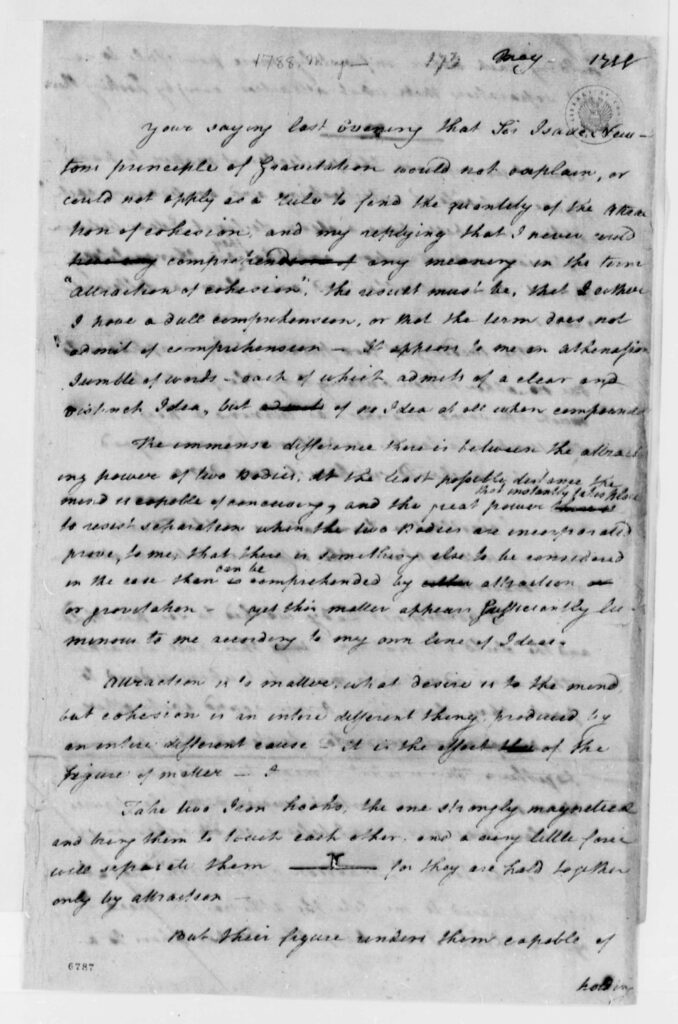 1788 May 173 May 1788
Your saying last Evening that Sir Isaac New-
tons principle of Gravitation would not explain, or
could not apply as a rule to find the quantity of the attrac
tion of cohesion, and my replying that I never could
have any comprehend any meaning in the term
"attraction of cohesion", the result must be, that I either
I have a dull comprehension, or that the term does not
admit of comprehension — It appears to me an Athanasian
Jumble of words — each of which admits of a clear and
distinct Idea, but admits of no Idea at all when compounded
The immense difference there is between the attract
ing power of two Bodies, at the least possible distance the
mind is capable of conceiving, and the great power
that instantly takes place
to resist separation when the two Bodies are incorporated
prove, to me, that there is something else to be considered
in the case than is can be comprehended by attraction or
or gravitation — yet this matter appears sufficiently lu
minous to me according to my own line of Ideas.
Attraction is to matter, what desire is to the mind
but cohesion is an entire different thing, produced by
an entire different cause — It is the effect of the
figure of matter —
Take two Iron hooks, the one strongly magnetical
and bring them to touch each other, and a very little force
will separate them for they are held together
only by attraction
But their figure renders them capable of
holding
6787